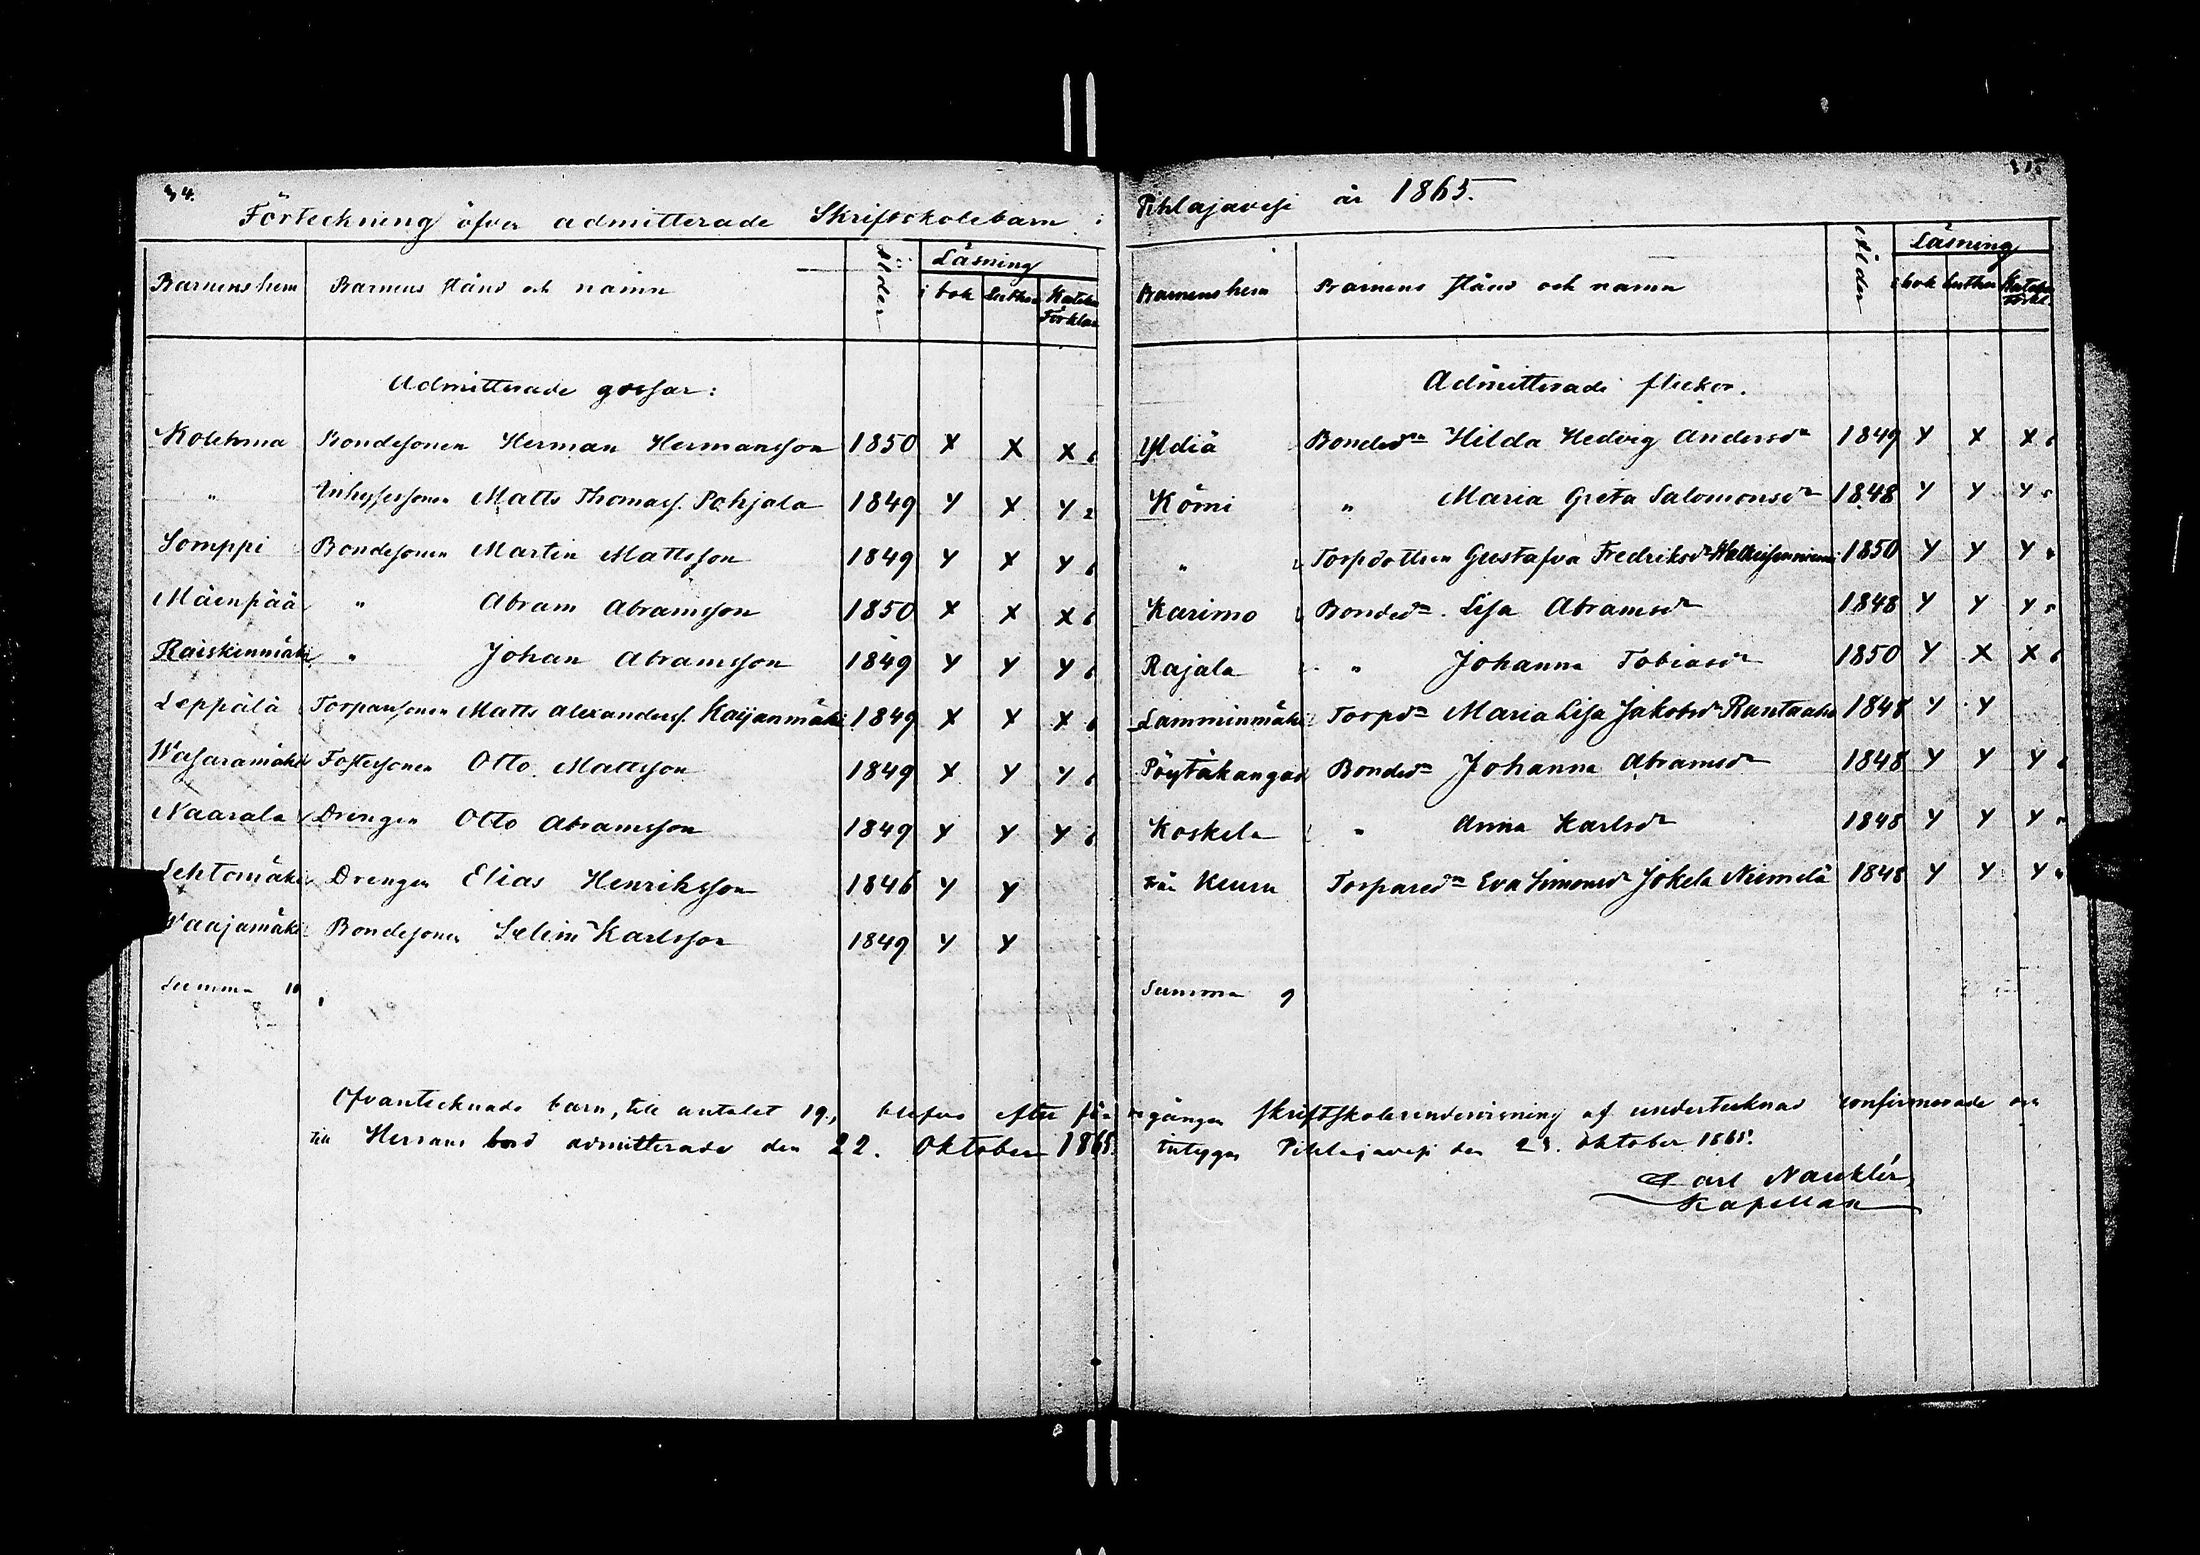 34.
Förteckning öfver admitterade Skriftskolebarn i Pihlajavesi år 1865.
Barnens hem Barnens stånd och namn Ålder Läsning
i bok Luther Katekes Förklar.
Admitterade gossar:
Kolehma Bondesonen Herman Hermansson 1850 X X X
" Inhysessonen Matts Thomass. Pohjala 1849 Y X Y
Somppi Bondesonen Martin Mattsson 1849 Y X Y
Mäenpää " Abram Abramsson 1850 X X X
Raiskinmäki " Johan Abramsson 1849 Y Y Y
Leppälä Torparsonen Matts Alexanders. Kaijanmäki 1849 X Y X
Wasaramäki Fostersonen Otto Mattsson 1849 X Y Y
Naarala Drengen Otto Abramsson 1849 Y Y Y
Lehtomäki Drengen Elias Henriksson 1846 Y Y
Waajamäki Bondesonen Selim Karlsson 1849 Y Y
Summa 10
Barnens hem Barnens stånd och namn Ålder Läsning
i bok Luther Katekes Förkl.
Admitterade flickor.
Yldiä Bonded:n Hilda Hedvig Andersd:r 1849 Y X X
Körni " Maria Greta Salomonsd:r 1848 Y Y Y
" Torpdottren Gustafva Fredriksd:r 1850 Y Y Y
Karimo Bonded:n Lisa Abramsd:r 1848 Y Y Y
Rajala " Johanna Tobiasd:r 1850 Y X X
Lamminmäki Torpd:n Maria Lisa Jakobsd:r Rantaaho 1848 Y Y
Pöytäkangas Bonded:n Johanna Abramsd:r 1848 Y Y Y
Koskela " Anna Karlsd:r 1848 Y Y Y
från Keuru Torpared:n Eva Simonsd:r Jokela Niemelä 1848 Y Y Y
Summa 9
Ofvantecknade barn, till antalet 19, blefvo efter föregången skriftskoleundervisning af undertecknad confirmerade och
till Herrans bord admitterade den 22. Oktober 1865. intygar Pihlajavesi den 23. Oktober 1865.
Carl Naukler,
Kapellan